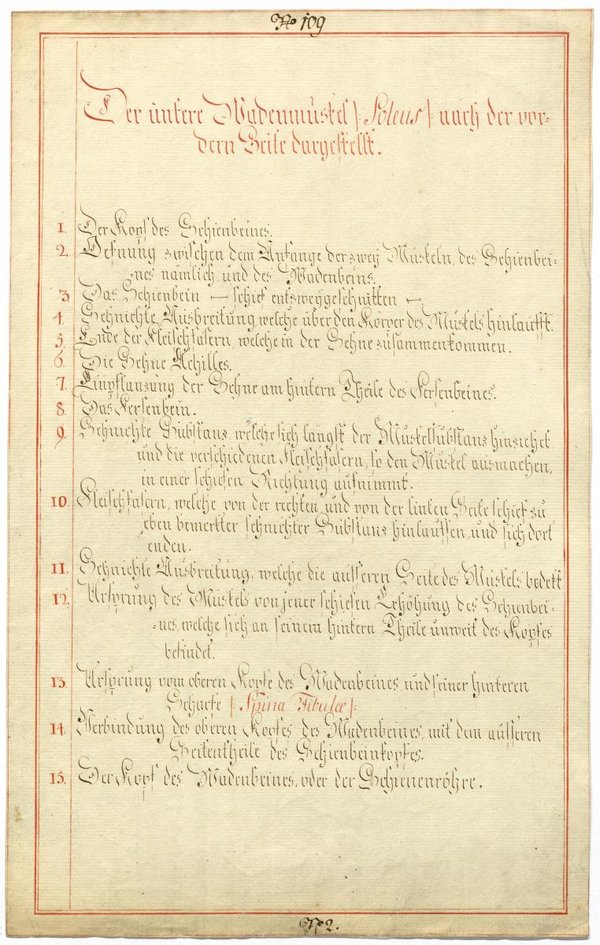 No 109
Der untere Wadenmuskel /: Soleus :/ nach der vor-
dern Seite dargestellt.
1. Der Kopf des Schienbeines.
2. Oefnung zwischen dem Anfange der zwey Muskeln, des Schienbei-
nes nämlich, und des Wadenbeins.
3 Das Schienbein — schief entzweygeschnitten —
4. Sehnichte Ausbreitung, welche über den Körper des Muskels hinlauft.
5. Ende der Fleischfasern, welche in der Sehne zusammenkommen.
6. Die Sehne Achilles.
7. Einpflanzung der Sehne am hintern Theile des Fersenbeines.
8. Das Fersenbein.
9. Sehnichte Substans, welche sich längst der Muskelsubstans hinziehet
und die verschiedenen Fleischfasern, so den Muskel ausmachen,
in einer schiefen Richtung aufnimmt.
10. Fleischfasern, welche von der rechten und von der linken Seite schief zu
eben bemerkter sehnichter Substans hinlauffen, und sich dort
enden.
11. Sehnichte Ausbreitung, welche die äusseren Seite des Muskels bedekt
12. Ursprung des Muskels von jener schiefen Erhöhung des Schienbei-
nes, welche sich an seinem hintern Theile unweit des Kopfes
befindet.
13. Ursprung vom oberen Kopfe des Wadenbeines und seiner hinteren
Schärfe /: Spina Fibulæ :/
14. Verbindung des oberen Kopfes des Wadenbeines, mit dem äusseren
Seitentheile des Schienbeinkopfes.
15. Der Kopf des Wadenbeines, oder der Schienenröhre.
No 2.